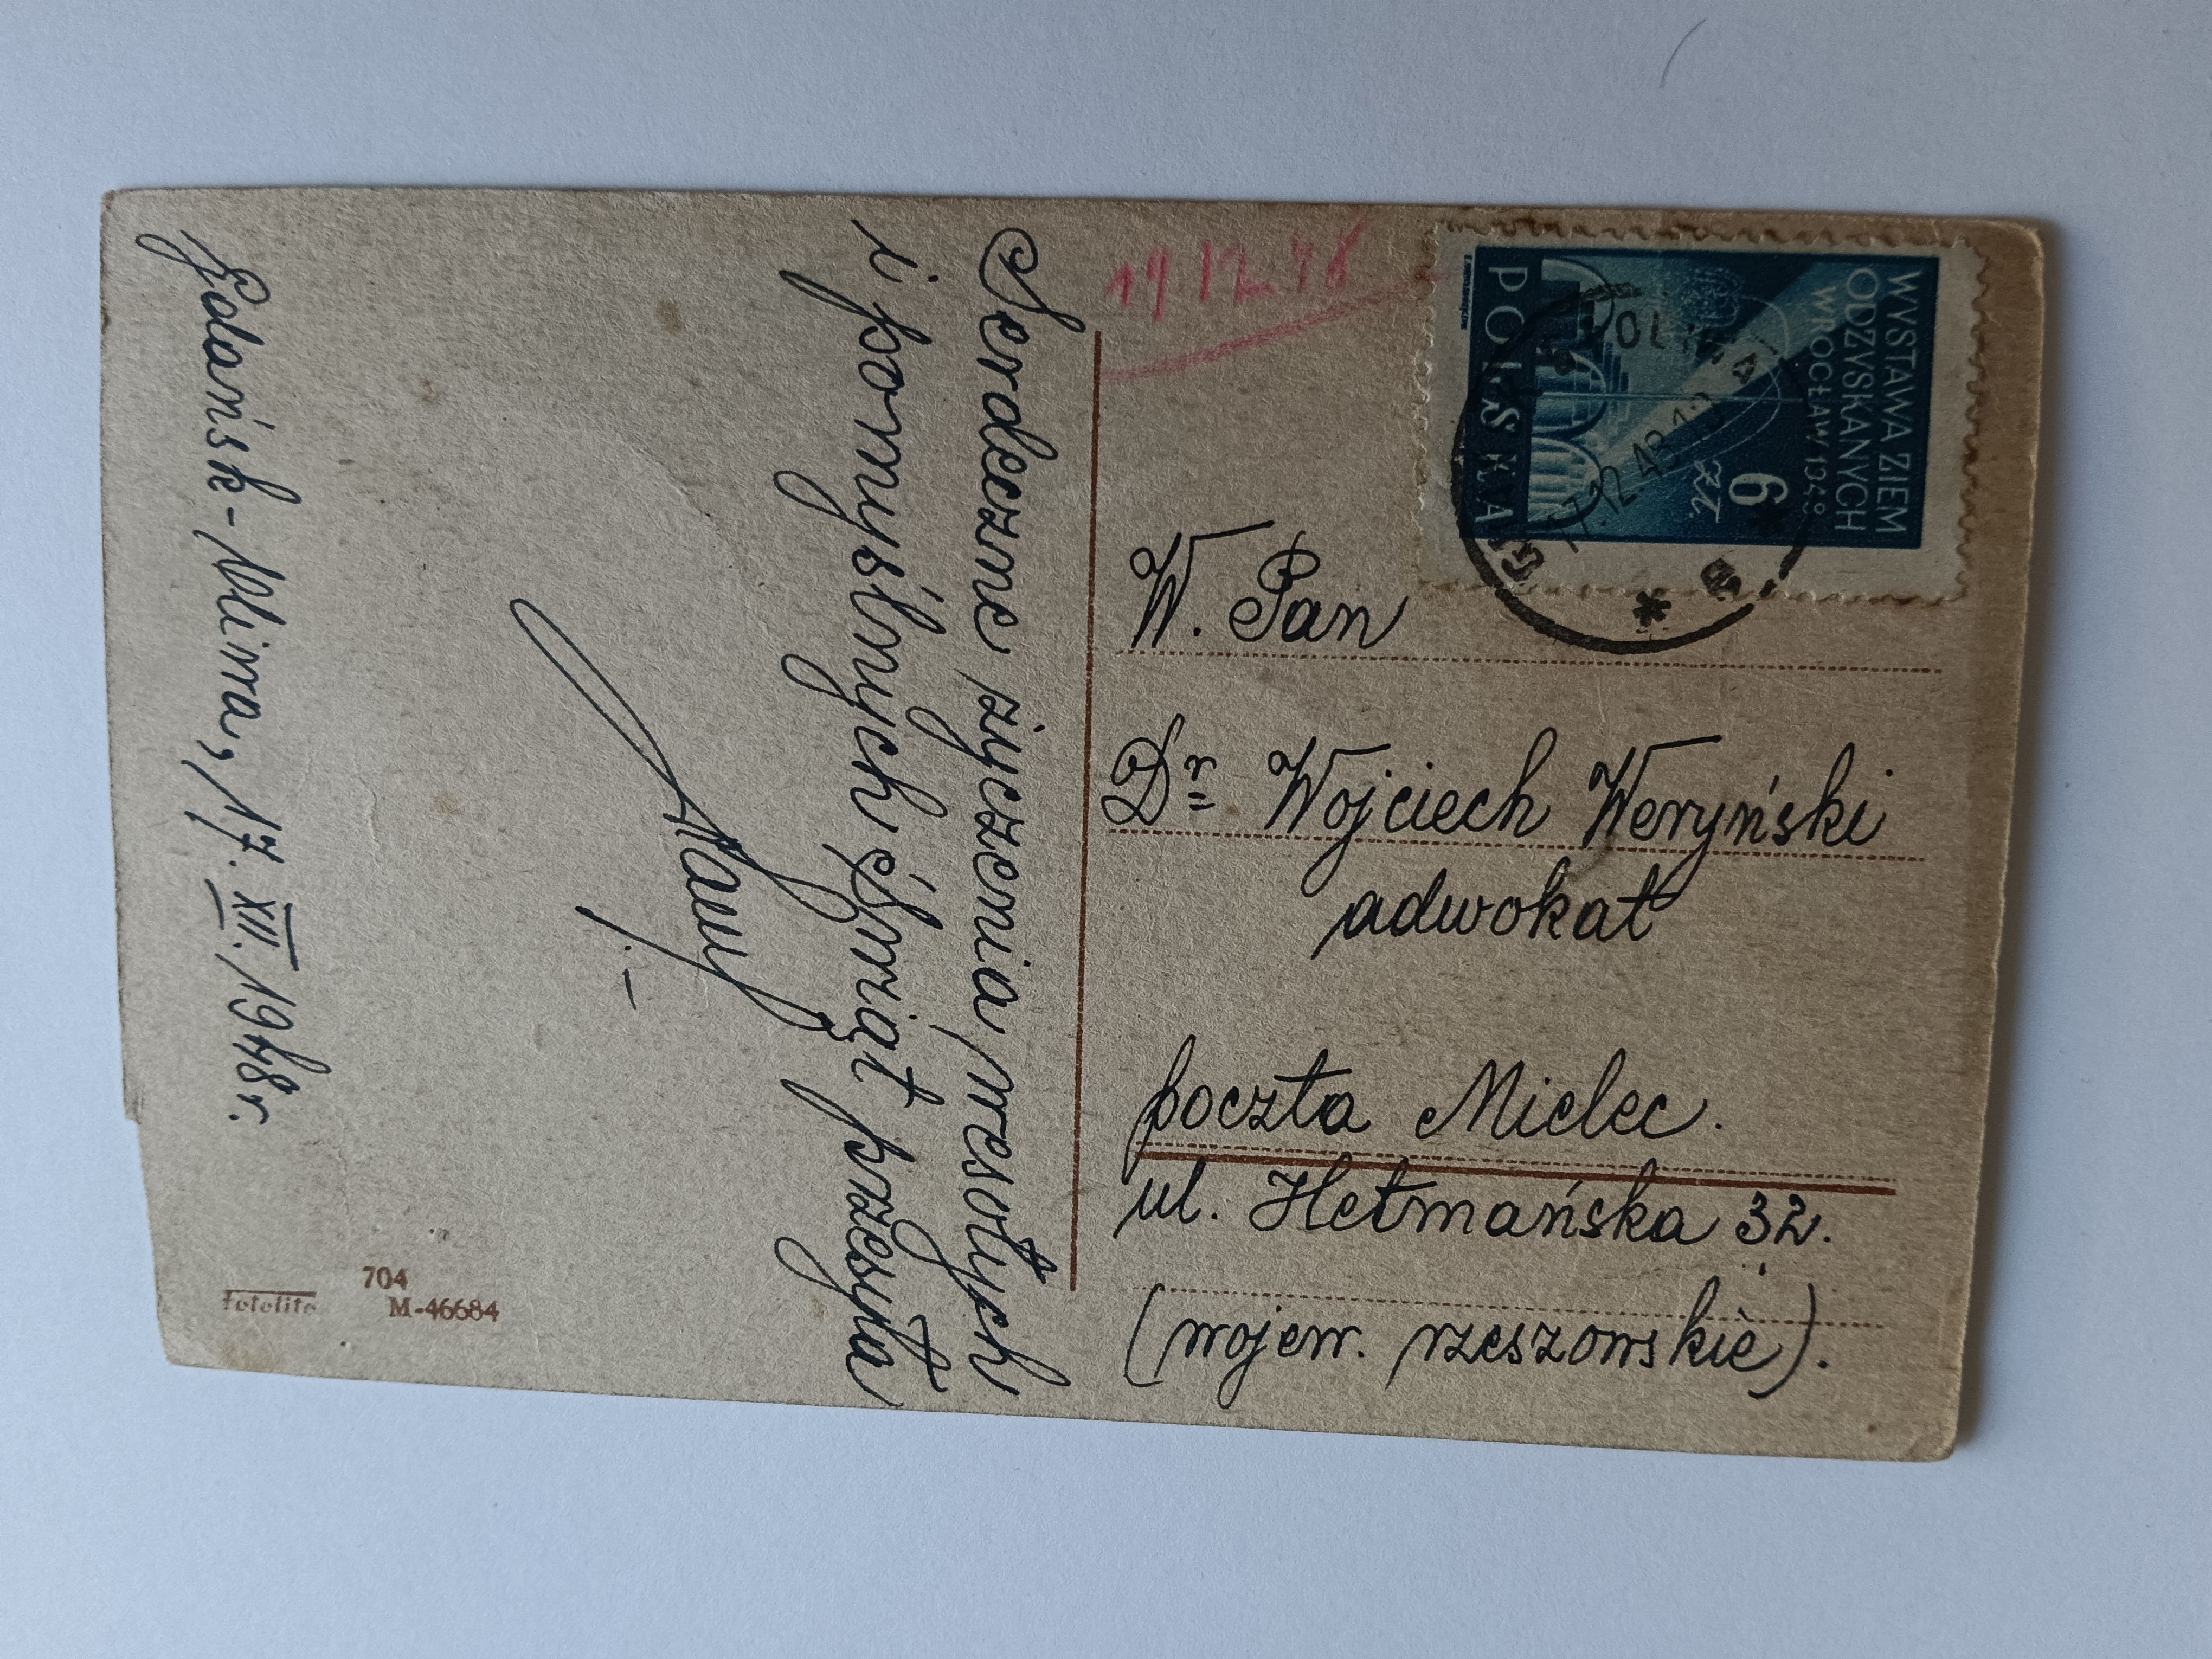 Serdeczne życzenia wesołych
i pomyślnych Świąt przesyła
Gdańsk-Wirra, 17. XII. 1948 r.
704
M-46684
Fotolito
19.12.48
WYSTAWA ZIEM
ODZYSKANYCH
WROCŁAW 1948
6
ZŁ.
POLSKA
OLIWA
17.12.48.18
W. Pan
Dr Wojciech Weryński
adwokat
poczta Mielec.
ul. Hetmańska 32.
(wojew. rzeszowskie).